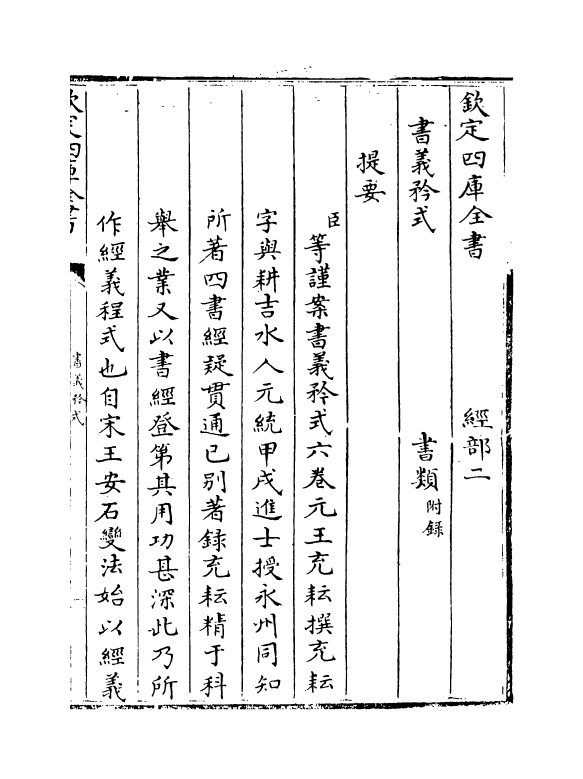 欽定四庫全書　經部二
書義矜式　書類附錄
提要
臣等謹案書義矜式六卷元王充耘撰充耘
字與耕吉水人元統甲戌進士授永州同知
所著四書經疑貫通已别著錄充耘精于科
舉之業又以書經登第其用功甚深此乃所
作經義程式也自宋王安石變法始以經義
欽定四庫全書
書義矜式